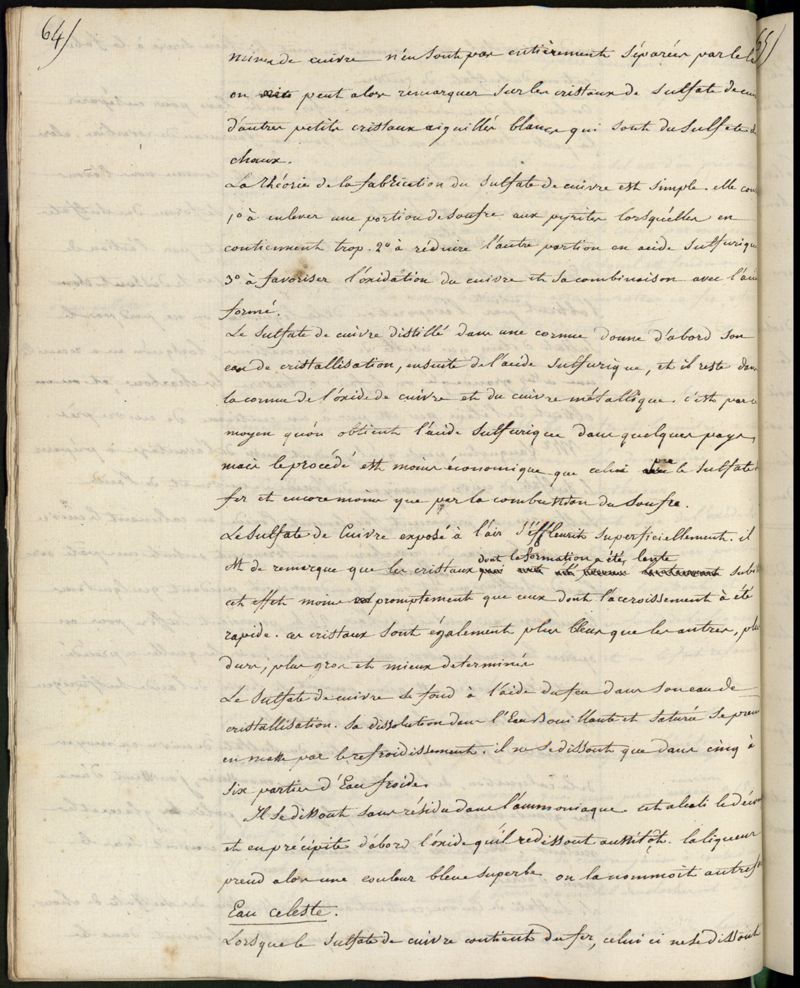 64)
65)
mines de cuivre n'en sont pas entièrement séparées par le
on peut alors remarquer sur les cristaux de sulfate de cui
d'autres petits cristaux aiguillés blancs qui sont du sulfate d
chaux.
La théorie de la fabrication du sulfate de cuivre est simple. elle con
1º à enlever une portion de soufre aux pyrites lorsqu'elles en
contiennent trop. 2º à réduire l'autre portion en acide sulfurique
3º à favoriser l'oxidation du cuivre et sa combinaison avec l'aci
formé.
Le sulfate de cuivre distillé dans une cornue donne d'abord son
eau de cristallisation, ensuite de l'acide sulfurique, et il reste dans
la cornue de l'oxide de cuivre et du cuivre métallique. c'est par ce
moyen qu'on obtient l'acide sulfurique dans quelques pays,
mais le procédé est moins économique que celui le sulfate d
fer et encore moins que par la combustion du soufre.
Le sulfate de Cuivre exposé à l'air s'effleurit superficiellement. il
est de remarque que les cristaux dont la formation a été lente
cet effet moins promptement que ceux dont l'accroissement à été
rapide. ces cristaux sont également plus bleus que les autres, plus
durs, plus gros et mieux determinés
Le sulfate de cuivre se fond à l'aide du feu dans son eau de
cristallisation. sa dissolution dans l'Eau bouillante et saturée se pren
en masse par le refroidissement. il ne se dissout que dans cinq à
six parties d'Eau froide.
Il se dissout sans résidu dans l'ammoniaque. cet alcali le décom
et en précipite d'abord l'oxide qu'il redissout aussitôt. la liqueur
prend alors une couleur bleue superbe on la nommoit autrefs
Eau celeste.
Lorsque le sulfate de cuivre contient du fer, celui ci ne se dissout